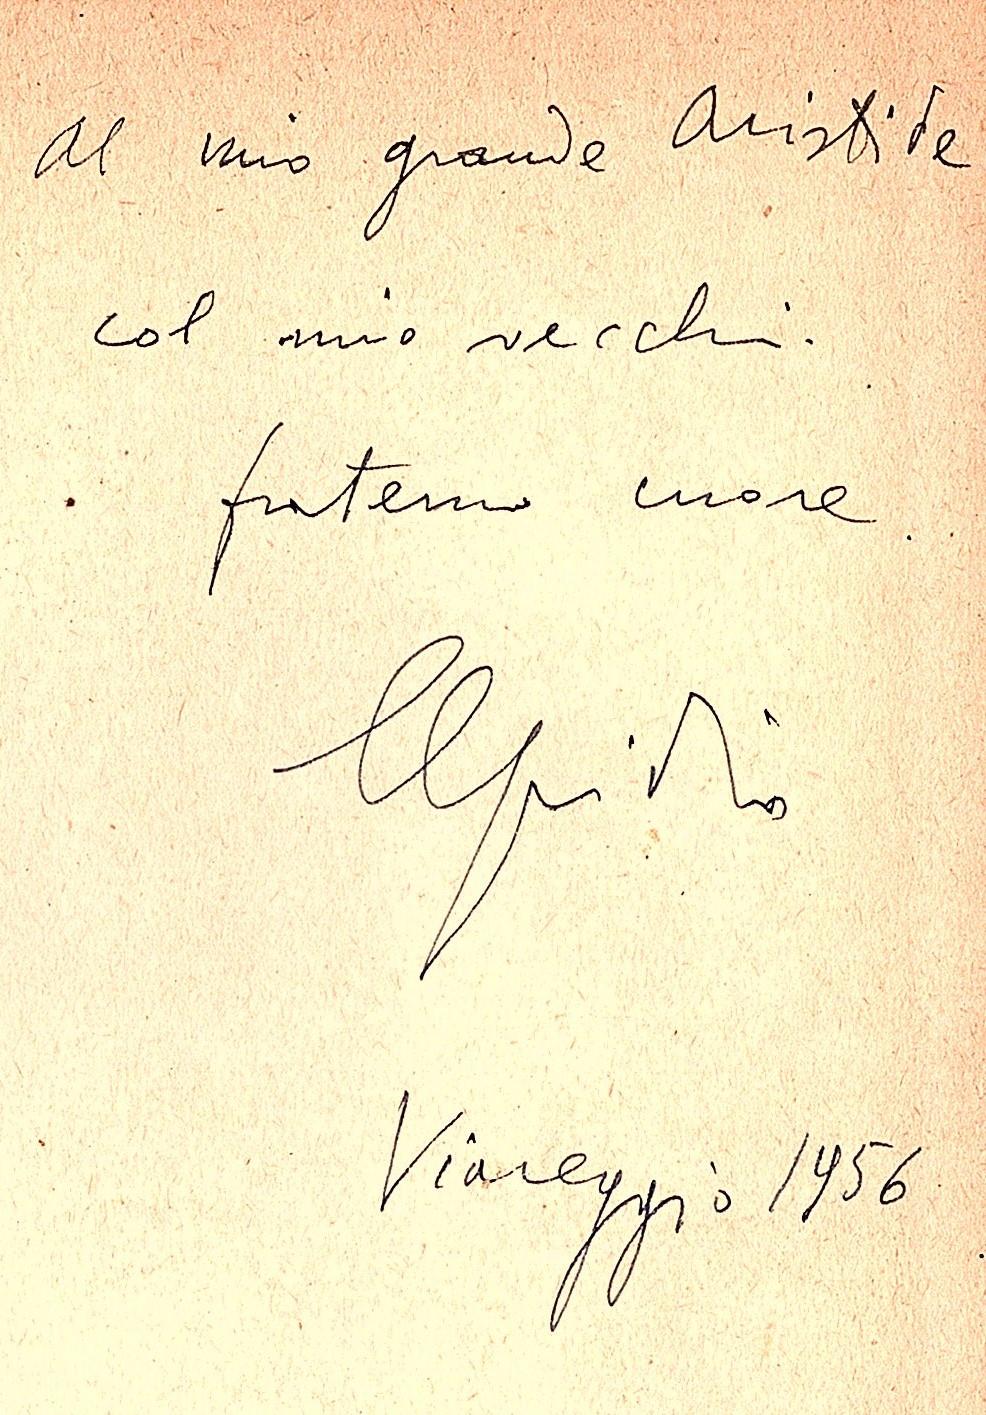 Al mio grande Aristide
col mio vecchi.
fraterno cuore.
Elpidio
Viareggio 1956